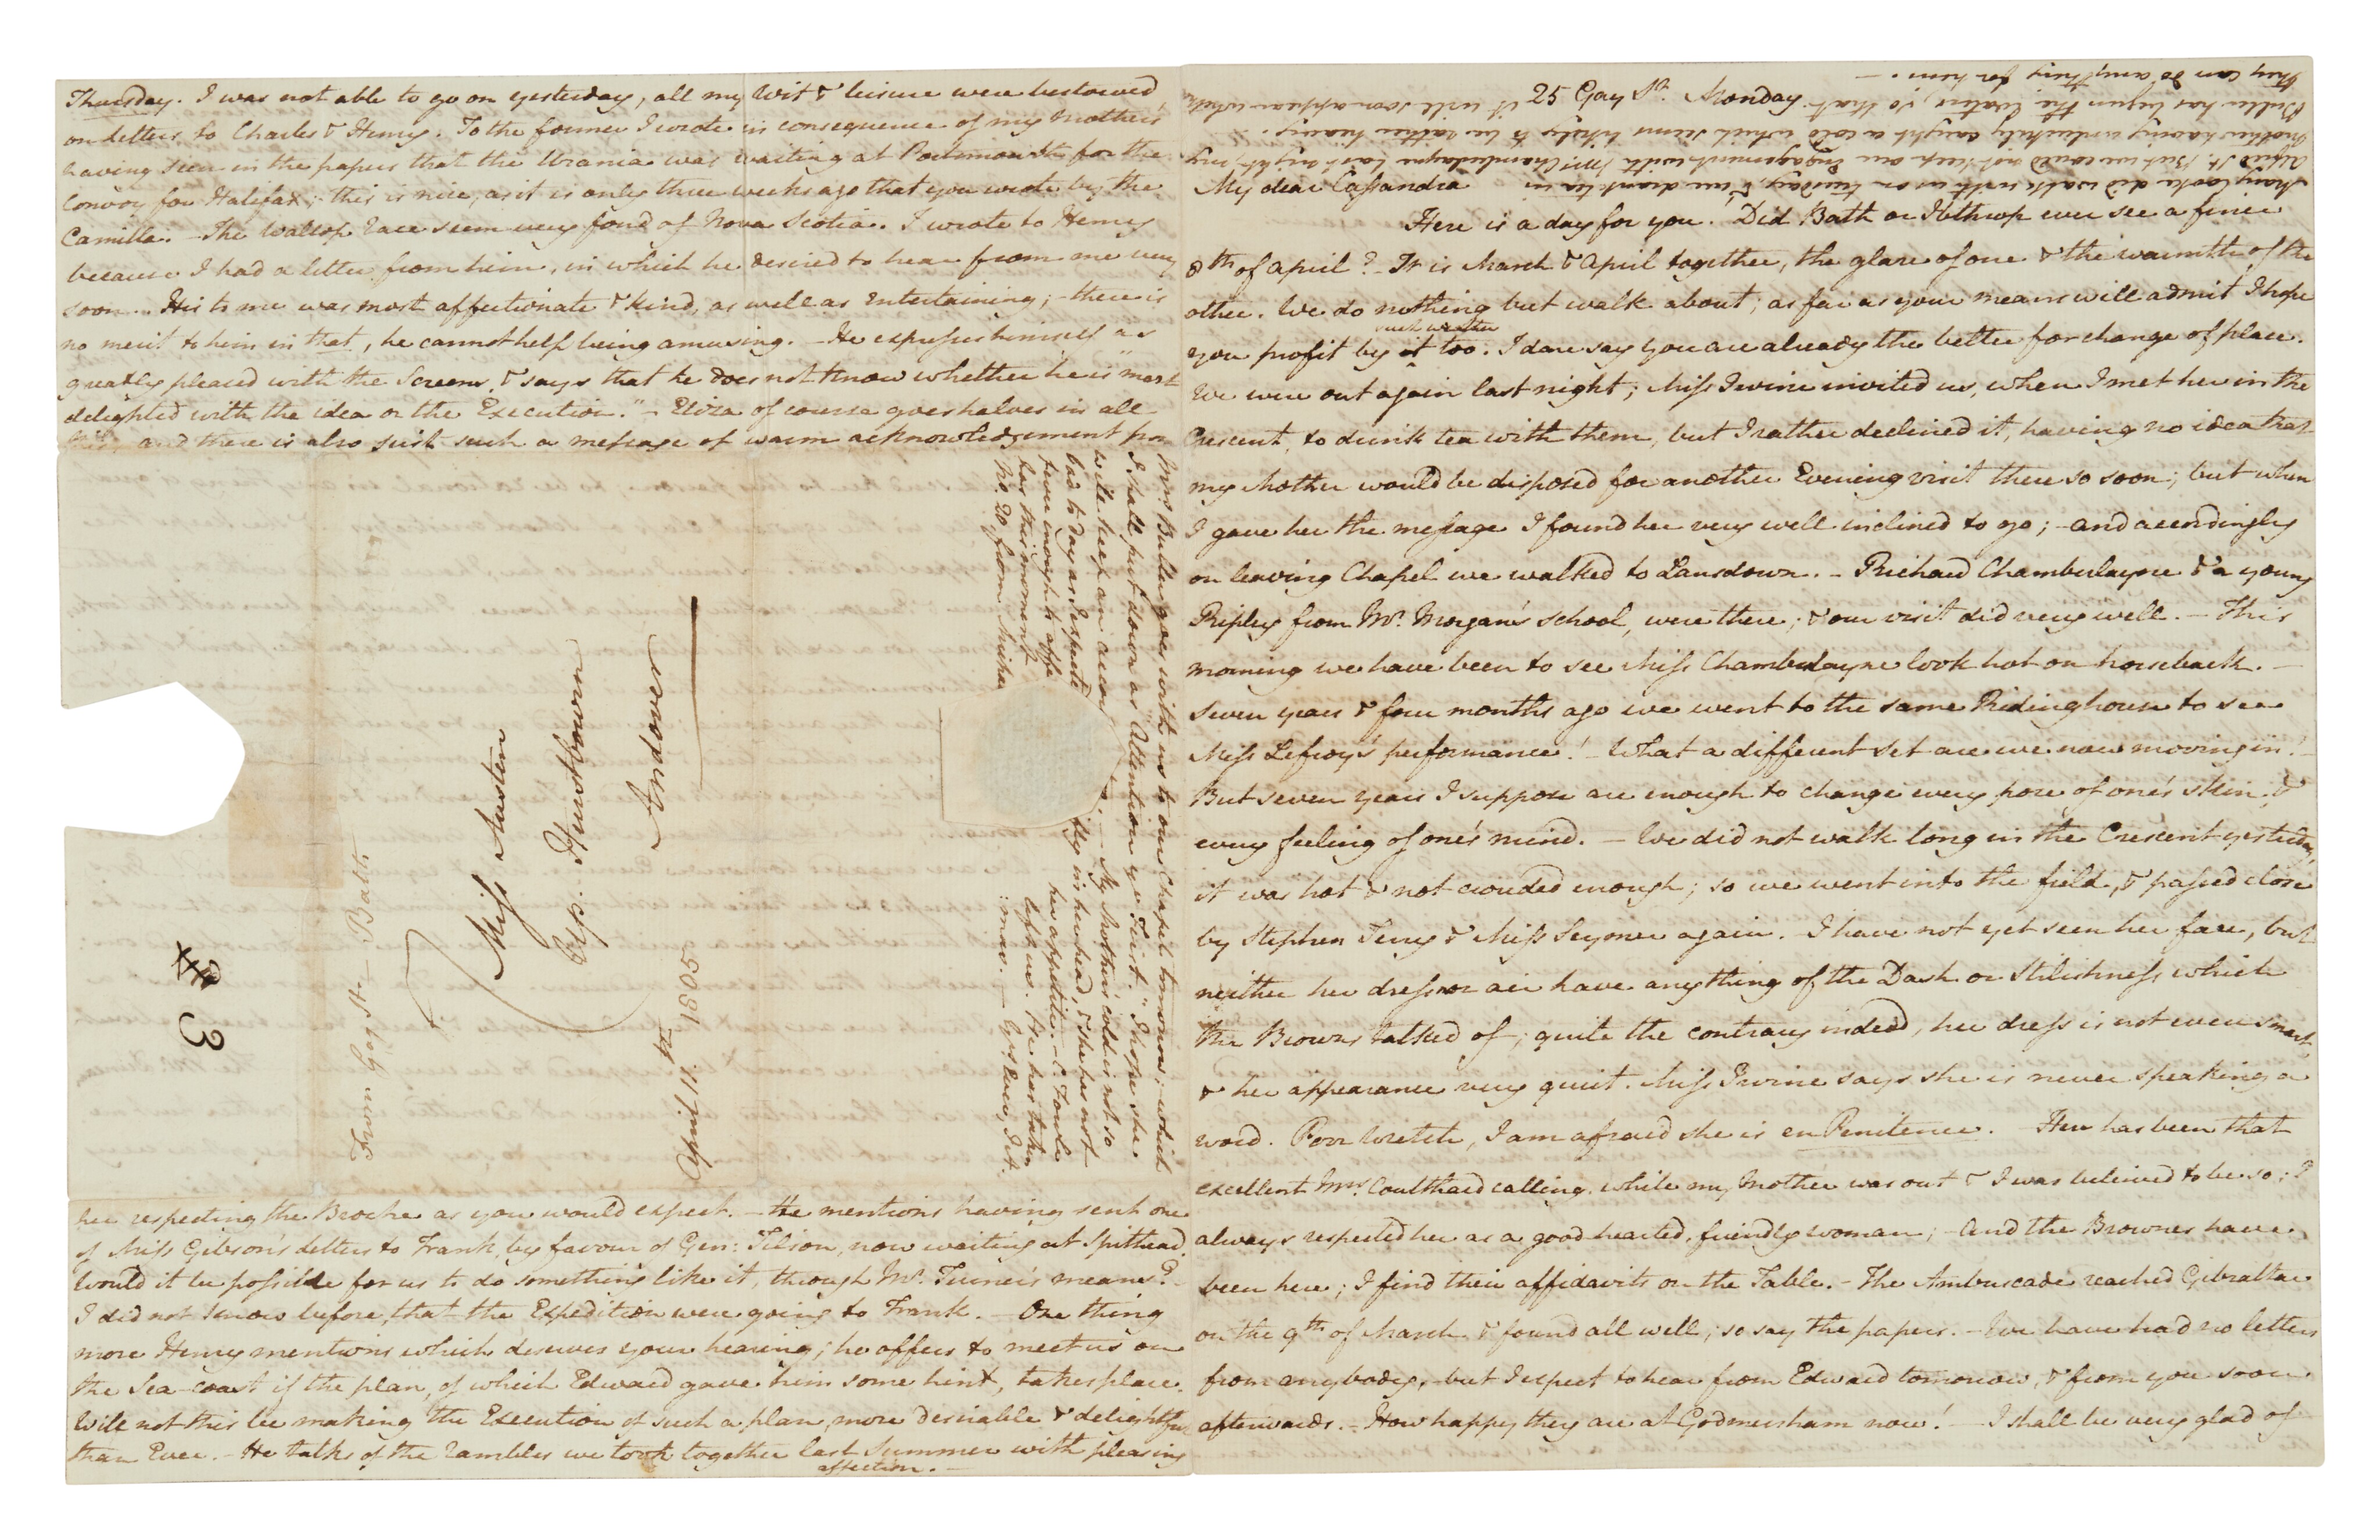 25 Gay St. Monday.
My dear Cassandra
Here is a day for you. Did Bath or Ibthrop ever see a finer
8th of April? - It is March & April together, the glare of one & the warmth of the
other. We do nothing but walk about; as far as your means will admit I hope
you profit by such weather too. I dare say you are already the better for change of place.
We were out again last night; Miss Irvine invited us, when I met her in the
Crescent, to drink tea with them, but I rather declined it, having no idea that
my Mother would be disposed for another Evening visit there so soon; but when
I gave her the message I found her very well inclined to go; - and accordingly
on leaving Chapel we walked to Lansdown. - Richard Chamberlayne & a young
Ripley from Mr. Morgan's school, were there; & our visit did very well. - This
morning we have been to see Miss Chamberlayne look hot on horseback. -
Seven years & four months ago we went to the same Ridinghouse to see
Miss Lefroy's performance! - What a different set are we now moving in!
But seven years I suppose are enough to change every pore of one's skin, &
every feeling of one's mind. - We did not walk long in the Crescent yesterday,
it was hot & not crouded enough; so we went into the field, & passed close
by Stephen Terry & Miss Seymer again. - I have not yet seen her face, but
neither her dress nor air have anything of the Dash or Stilishness which
the Browns talked of; quite the contrary indeed, her dress is not even smart,
& her appearance very quiet. Miss Irvine says she is never speaking a
word. Poor Wretch, I am afraid she is en Penitence. - Here has been that
excellent Mrs. Coulthard calling, while my Mother was out & I was beleived to be so; I
always respected her as a good-hearted, friendly woman; - And the Brownes have
been here; I find their affidavits on the Table. - The Ambuscade reached Gibraltar
on the 9th of March & found all well; so say the papers. - We have had no letters
from anybody, - but I expect to hear from Edward tomorrow, & from you soon
afterwards. - How happy they are at Godmersham now! - I shall be very glad of
Thursday. I was not able to go on yesterday, all my Wit & leisure were bestowed
on letters to Charles & Henry. To the former I wrote in consequence of my Mother's
having seen in the papers that the Urania was waiting at Portsmouth for the
Convoy for Halifax; - this is nice, as it is only three weeks ago that you wrote by the
Camilla. - The Wallop race seem very fond of Nova Scotia. I wrote to Henry
because I had a letter from him, in which he desired to hear from me very
soon. - His to me was most affectionate & kind, as well as entertaining; - there is
no merit to him in that, he cannot help being amusing. - He expresses himself as
greatly pleased with the Screen, & says that he does not know whether he is "most
delighted with the idea or the Execution." - Eliza of course goes halves in all
this, and there is also just such a message of warm acknowledgement from
her respecting the Broche as you would expect. - He mentions having sent one
of Miss Gibson's letters to Frank, by favour of Gen: Tilson, now waiting at Spithead.
Would it be possible for us to do something like it, through Mr. Turner's means? -
I did not know before, that the Expedition were going to Frank. - One thing
more Henry mentions which deserves your hearing; he offers to meet us on
the Sea-coast if the plan, of which Edward gave him some hint, takes place.
Will not this be making the Execution of such a plan, more desirable & delightful
than Ever. - He talks of the rambles we took together last Summer with pleasing
affection. -
Mrs. Buller goes with us to our Chapel tomorrow; - which
I shall put down as "Attention ye First." I hope she
will keep an
My Mother's cold is not so
bad to day as I expected
in her head, & she has not
fever enough to
her appetite. - C. Fowle
has this moment
left us. He has taken
No. 20 from
Yrs Ever, J.A.
Miss Austen
Andover
April 11th 1805
From Gay St. - Bath
43
Mary Cooke did walk with us on Tuesday, & we drank tea in
Alfred St. But we could not keep our Engagement with Mrs. Chamberlayne last night, my
Mother having unluckily caught a cold which seems likely to be rather heavy.
Buller has begun the Waters, so that it will soon appear whether
they can do anything for him. -